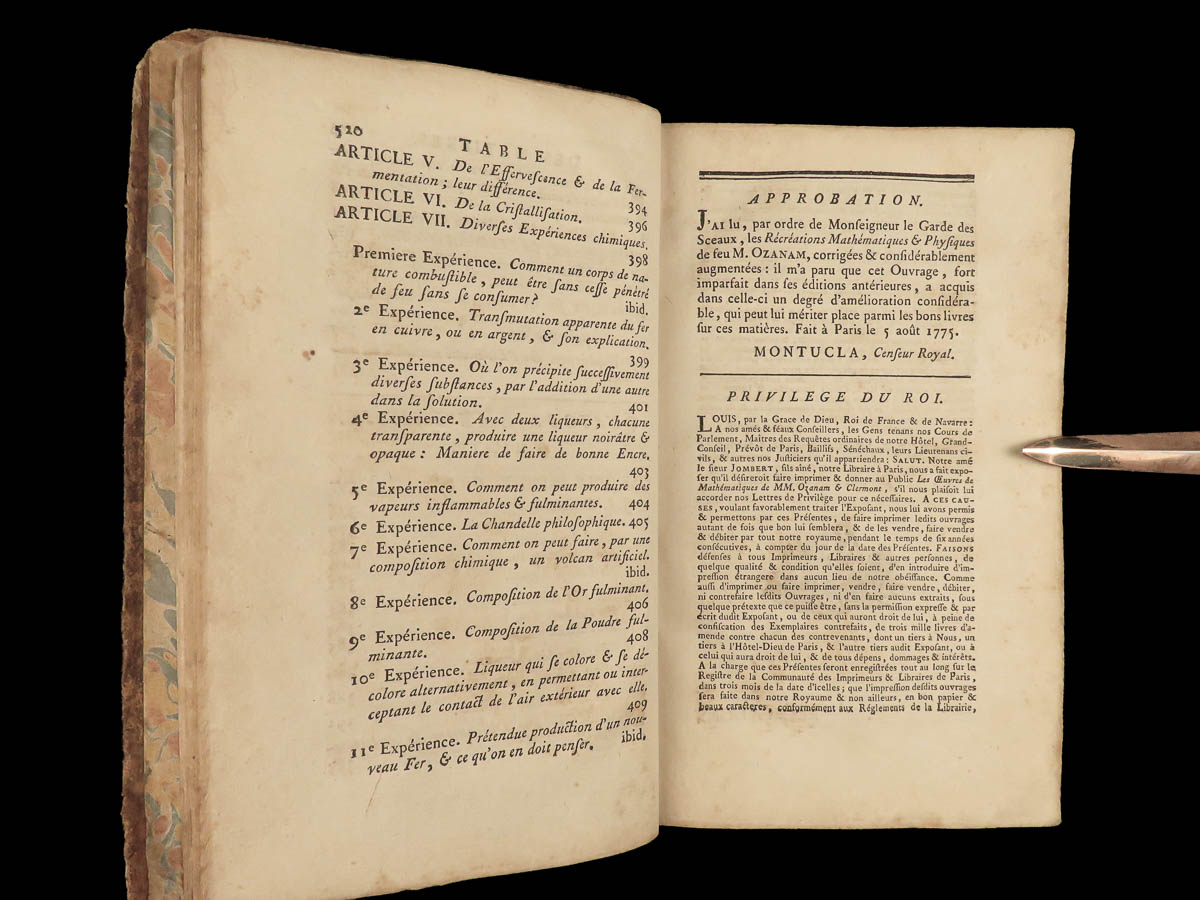 520
TABLE
ARTICLE V. De l'Efferveſcence & de la Fer-
mentation ; leur différence. 394
ARTICLE VI. De la Criſtalliſation. 396
ARTICLE VII. Diverſes Expériences chimiques.
398
Premiere Expérience. Comment un corps de na-
ture combuſtible , peut être ſans ceſſe pénétré
de feu ſans ſe conſumer? ibid.
2e Expérience. Tranſmutation apparente du fer
en cuivre, ou en argent, & ſon explication.
399
3e Expérience. Où l'on précipite ſucceſſivement
diverſes ſubſtances, par l'addition d'une autre
dans la ſolution. 401
4e Expérience. Avec deux liqueurs, chacune
tranſparente, produire une liqueur noirâtre &
opaque : Maniere de faire de bonne Encre.
403
5e Expérience. Comment on peut produire des
vapeurs inflammables & fulminantes. 404
6e Expérience. La Chandelle philoſophique. 405
7e Expérience. Comment on peut faire, par une
compoſition chimique, un volcan artificiel.
ibid.
8e Expérience. Compoſition de l'Or fulminant.
406
9e Expérience. Compoſition de la Poudre ful-
minante. 408
10e Expérience. Liqueur qui ſe colore & ſe dé-
colore alternativement, en permettant ou inter-
ceptant le contact de l'air extérieur avec elle.
409
11e Expérience. Prétendue production d'un nou-
veau Fer, & ce qu'on en doit penſer. ibid.
APPROBATION.
J'AI lu, par ordre de Monſeigneur le Garde des
Sceaux, les Récréations Mathématiques & Phyſiques
de feu M. OZANAM, corrigées & conſidérablement
augmentées : il m'a paru que cet Ouvrage, fort
imparfait dans ſes éditions antérieures, a acquis
dans celle-ci un degré d'amélioration conſidéra-
ble, qui peut lui mériter place parmi les bons livres
ſur ces matières. Fait à Paris le 5 août 1775.
MONTUCLA, Cenſeur Royal.
PRIVILEGE DU ROI.
LOUIS, par la Grace de Dieu, Roi de France & de Navarre :
A nos amés & féaux Conſeillers, les Gens tenans nos Cours de
Parlement, Maîtres des Requêtes ordinaires de notre Hôtel, Grand-
Conſeil, Prévôt de Paris, Baillifs, Sénéchaux, leurs Lieutenans ci-
vils, & autres nos Juſticiers qu'il appartiendra : SALUT. Notre amé
le ſieur JOMBERT, fils aîné, notre Libraire à Paris, nous a fait expo-
ſer qu'il déſireroit faire imprimer & donner au Public Les Œuvres de
Mathématiques de MM. Ozanam & Clermont, s'il nous plaiſoit lui
accorder nos Lettres de Privilége pour ce néceſſaires. A CES CAU-
SES, voulant favorablement traiter l'Expoſant, nous lui avons permis
& permettons par ces Préſentes, de faire imprimer leſdits ouvrages
autant de fois que bon lui ſemblera, & de les vendre, faire vendre
& débiter par tout notre royaume, pendant le temps de ſix années
conſécutives, à compter du jour de la date des Préſentes. FAISONS
défenſes à tous Imprimeurs, Libraires & autres perſonnes, de
quelque qualité & condition qu'elles ſoient, d'en introduire d'im-
preſſion étrangere dans aucun lieu de notre obéiſſance. Comme
auſſi d'imprimer ou faire imprimer, vendre, faire vendre, débiter,
ni contrefaire leſdits Ouvrages, ni d'en faire aucuns extraits, ſous
quelque prétexte que ce puiſſe être, ſans la permiſſion expreſſe & par
écrit dudit Expoſant, ou de ceux qui auront droit de lui, à peine de
confiſcation des Exemplaires contrefaits, de trois mille livres d'a-
mende contre chacun des contrevenants, dont un tiers à Nous, un
tiers à l'Hôtel-Dieu de Paris, & l'autre tiers audit Expoſant, ou à
celui qui aura droit de lui, & de tous dépens, dommages & intérêts.
A la charge que ces Préſentes ſeront enregiſtrées tout au long ſur le
Regiſtre de la Communauté des Imprimeurs & Libraires de Paris,
dans trois mois de la date d'icelles ; que l'impreſſion deſdits ouvrages
ſera faite dans notre Royaume & non ailleurs, en bon papier &
beaux caractères, conformément aux Réglements de la Librairie,